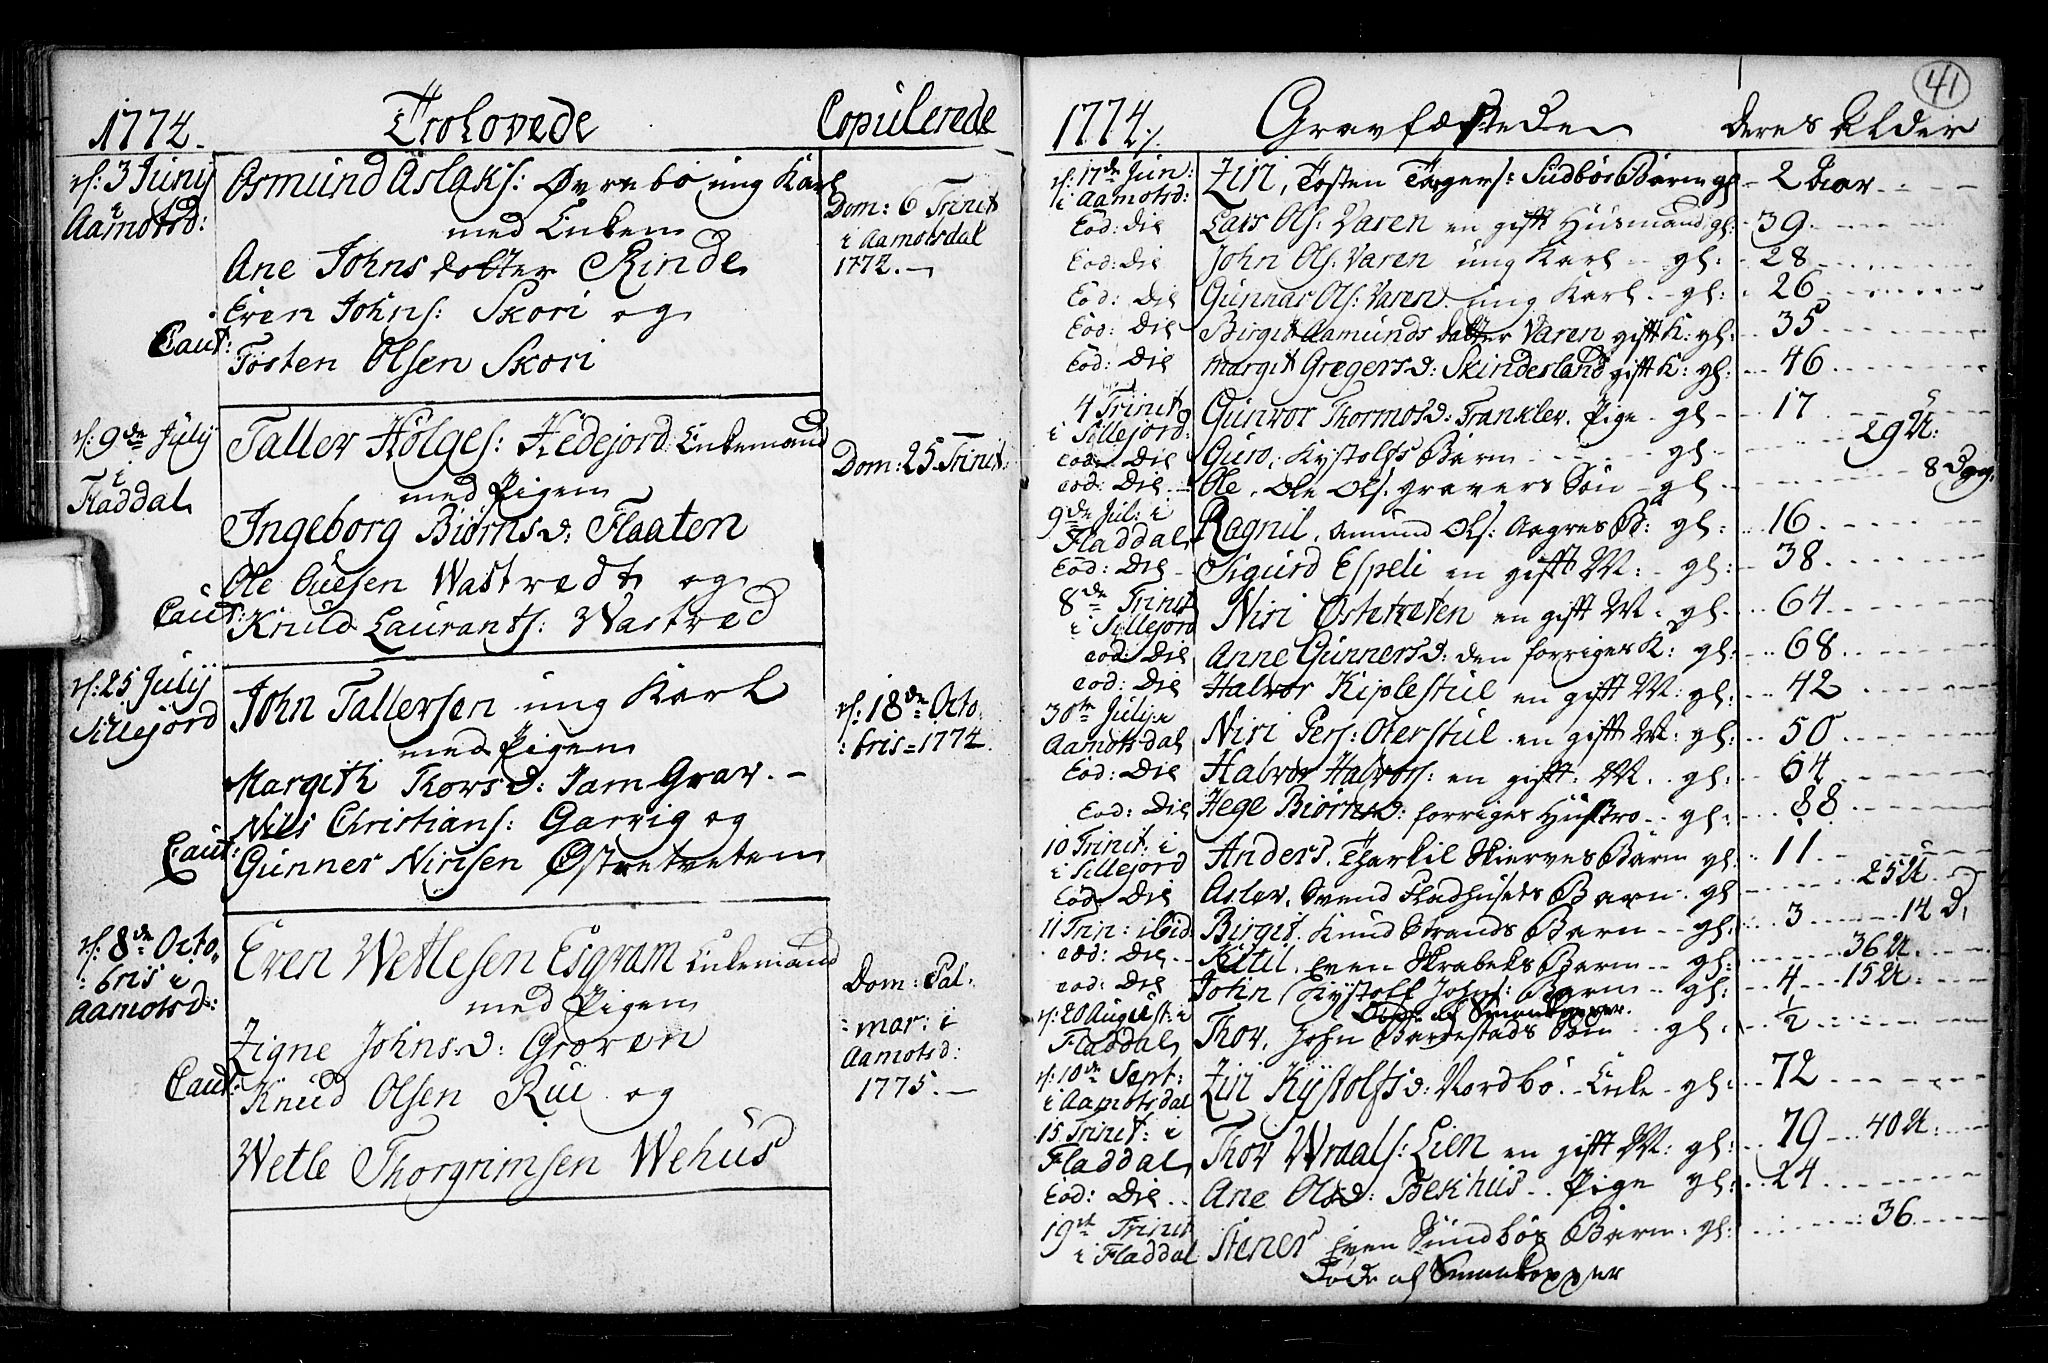 1774.
Trolovede
Copulerede
d: 3 Junij
i
Aamotsd:
Osmund Aslaks: Øvrebø ung Karl
med Enken
Ane Johns dotter Rinde
Even Johns: Skori og
Caut:
Tosten Olsen Skori
Dom: 6 Trinit
i Aamotsdal
1774. —
d: 9de Julij
i
Fladdal
Taller Holges: Hedejord Enkemand
med Pigen
Ingeborg Biørnsd: Flaaten
Ole Ouesen Wastredt og
Caut:
Knud Laurants: Wastred
Dom: 25 Trinit:
d: 25 Julij
Sillejord
John Tallersen ung Karl
med Pigen
Margith Thorsd: Jam Grav. —
Nils Christians: Garvig og
Caut:
Gunner Nirisen Østretveten
d: 18de Octo
: bris = 1774.
d: 8de Octo
: bris i
Aamotsd:
Even Wetlesen Esgram Enkemand
med Pigen
Zigne Johns d: Groven
Caut:
Knud Olsen Rui og
Wetle Thorgrimsen Wehus
Dom: Pal
= mar: i
Aamotsd:
1775. —
41
1774.
Gravfæstede
deres Alder
d: 17de Jun:
i Aamotsd:
Ziri, Tosten Targers: Sudbøs Barn gl - 2 Aar
Eod: Die Lars Ols: Varen en gift Husmand gl: - 39
Eod: Die John Ols: Varen ung Karl gl: - 28
Eod: Die Gunnar Ols: Varen ung Karl gl: - 26
Eod: Die Birgit Aamunds datter Varen gift K: gl: 35
Eod: Die Margit Gregersd: Skinderland gift K: gl: 46
4 Trinit
i Sillejord:
Gunvor Thormosd: Trankler. Pige gl - 17
eod: Die Guro, Kystolfs Barn gl - 29 U:
eod: Die Ole, Ole Ols: gravers Søn gl - 8 Dag:
9de Jul: i
Fladdal
Ragnil, Amund Ols: Aagres B: gl: 16
Eod: Die Sigurd Espeli en gift M: gl: 38
8de Trinit
i Sillejord
Niri Østetveten en gift M: gl: 64
eod: Die Anne Gunnersd: den forriges K: gl: 68
eod: Die Halvor Kiplestul en gift M: gl: 42
30te Julij i
Aamotsdal
Niri Pers: Oterstul en gift M: gl: 50
Eod: Die Halvor Halvors: en gift M. gl: 64
Eod: Die Hege Biørnsd: forriges Hustro gl: 88
10 Trinit: i
i Sillejord
Anders, Tharkil Skierves Barn gl: 11
Eod: Die Aslev, Svend Fladhusets Barn gl 25 U
11 Trin: ibid Birgit, Knud Strands Barn gl: 3 14 D.
eod: Die Kitil, Even Skrabeks Barn gl: 36 U
eod: Die John Kystolf Johns: Barn gl: 4 15 U
Døde af Smaakopper.
d: 20 August: i
Fladdal
Thor, John Barrestads Søn gl: ½
d: 10de Sept:
i Aamotsdal
Ziri Kystolfsd: Nordbø Enke gl: 72
15 Trinit: i
Fladdal
Thov Wraals: Lien en gift M: gl: 79 40 U:
Eod: Die Ane Olsd: Bekhus Pige gl: 24
19de Trinit
i Fladdal
Stener Even Sundbøs Barn gl: 36
Døde af Smaakopper